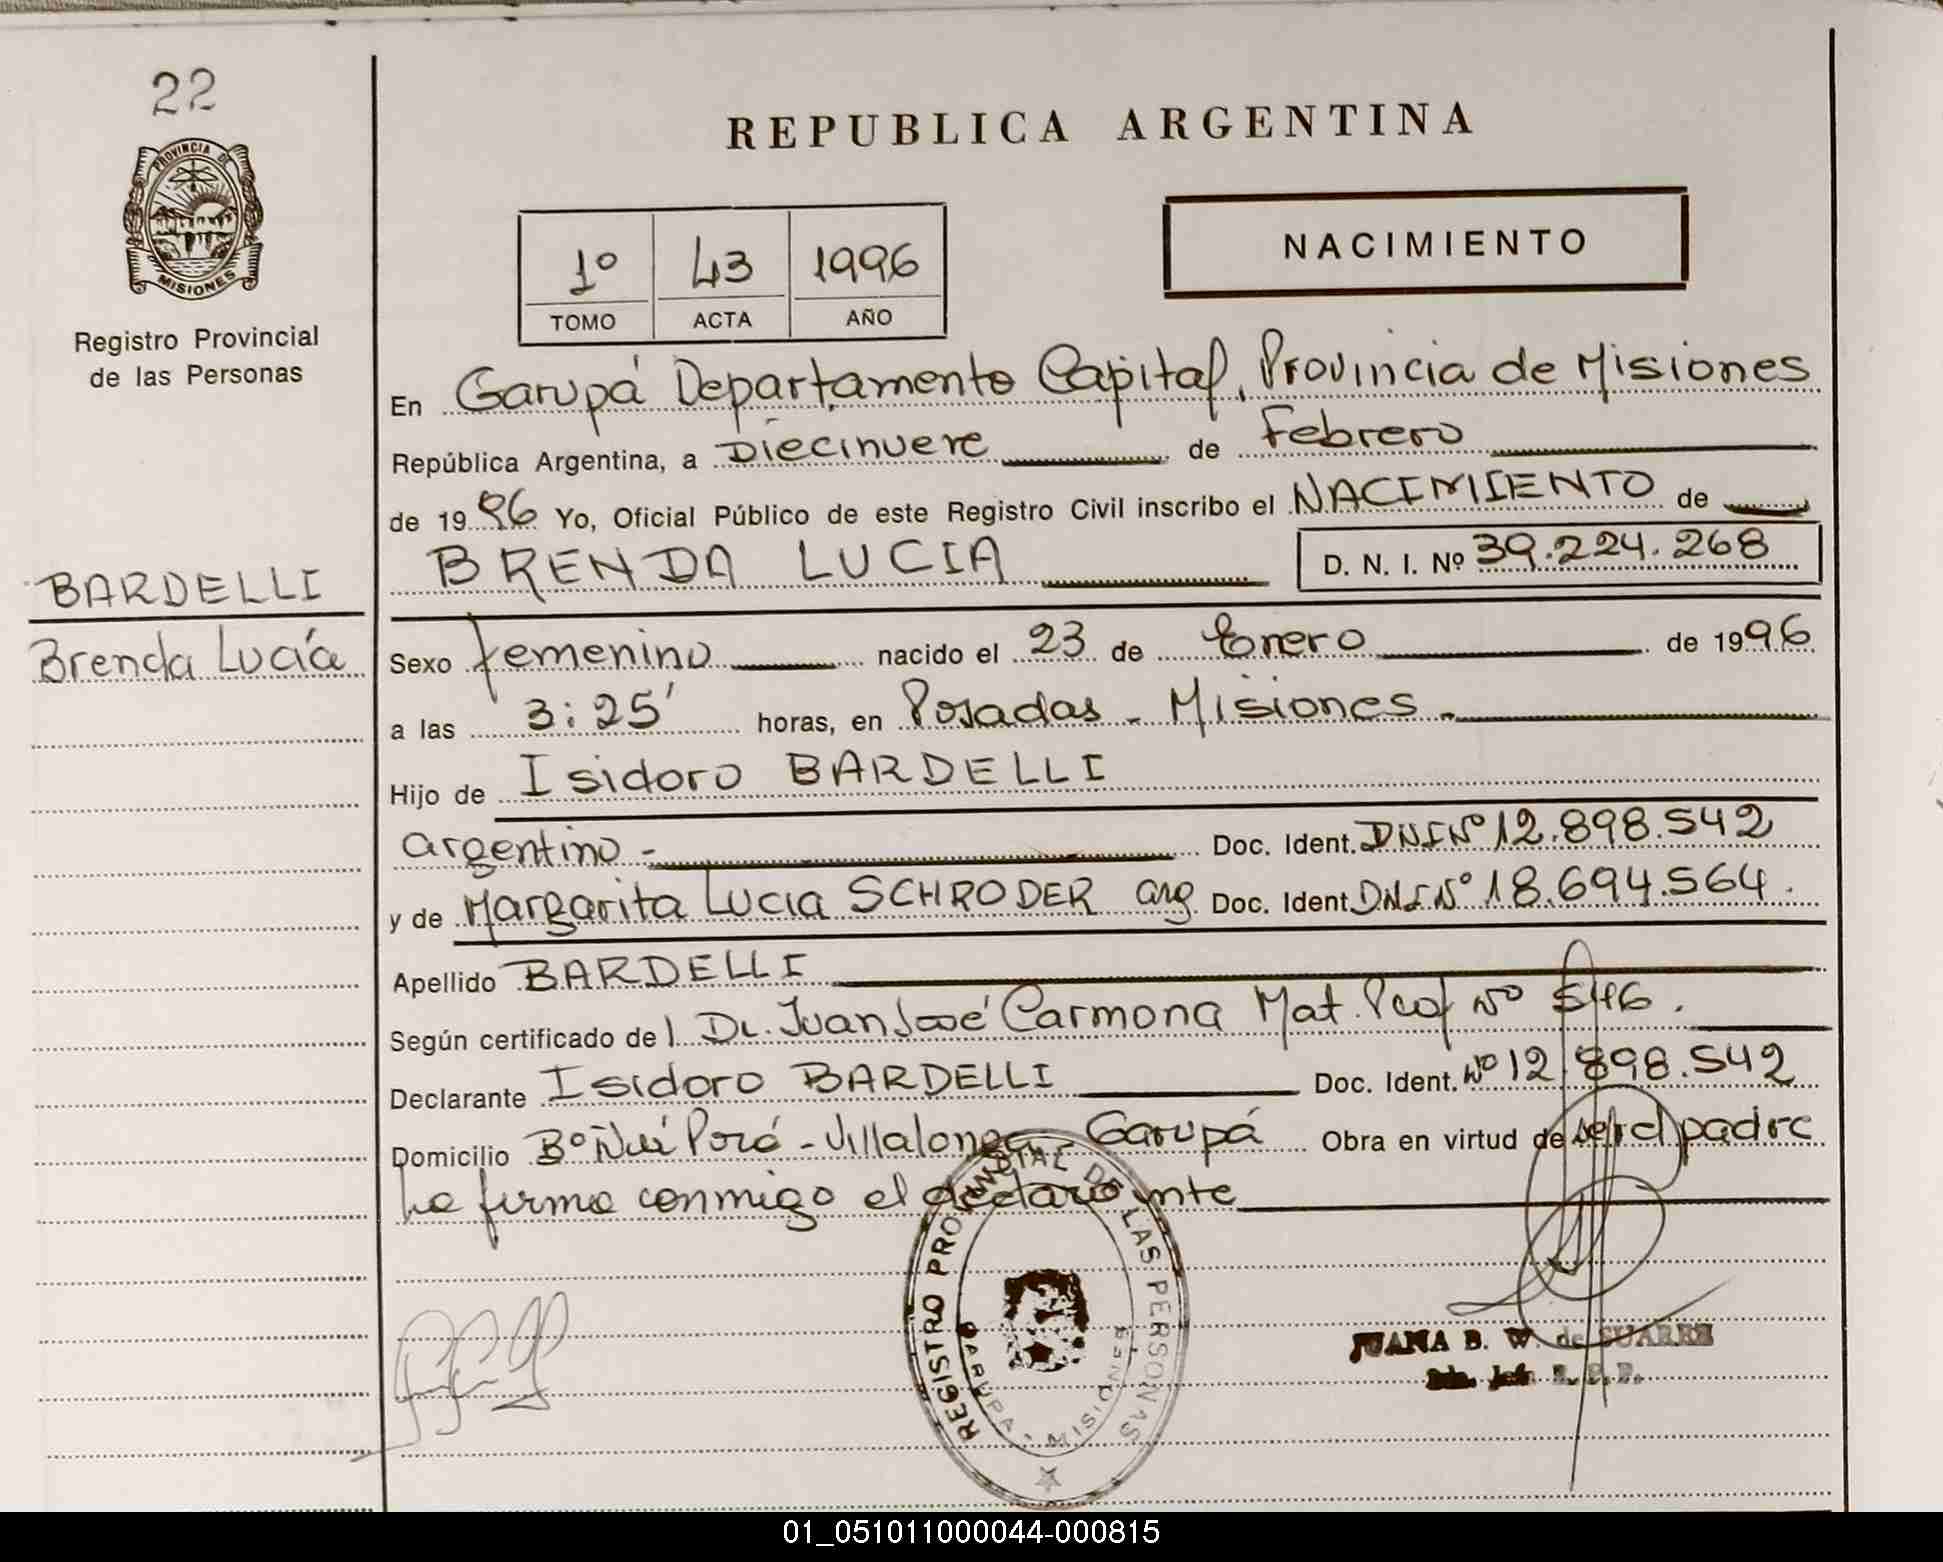 22
PROVINCIA DE
MISIONES
Registro Provincial
de las Personas
REPUBLICA ARGENTINA
1º 43 1996
TOMO ACTA AÑO
NACIMIENTO
En Garupá Departamento Capital, Provincia de Misiones
República Argentina, a Diecinueve de Febrero
de 1996 Yo, Oficial Público de este Registro Civil inscribo el NACIMIENTO de
BRENDA LUCIA D. N. I. Nº 39.224.268
BARDELLI
Brenda Lucía
Sexo femenino nacido el 23 de Enero de 1996
a las 3:25' horas, en Posadas - Misiones -
Hijo de Isidoro BARDELLI
argentino - Doc. Ident. DNI Nº 12.898.542
y de Margarita Lucia SCHRODER arg Doc. Ident. DNI Nº 18.694.564.
Apellido BARDELLI
Según certificado de l Dr. Juan José Carmona Mat. Prof Nº 546.
Declarante Isidoro BARDELLI Doc. Ident. Nº 12.898.542
Domicilio Bº Ñu Porá - Villalonga - Garupá Obra en virtud de ser el padre
La firma conmigo el declarante
REGISTRO PROVINCIAL DE LAS PERSONAS
GARUPA - MISIONES
JUANA B. W. de SUAREZ
01_051011000044-000815